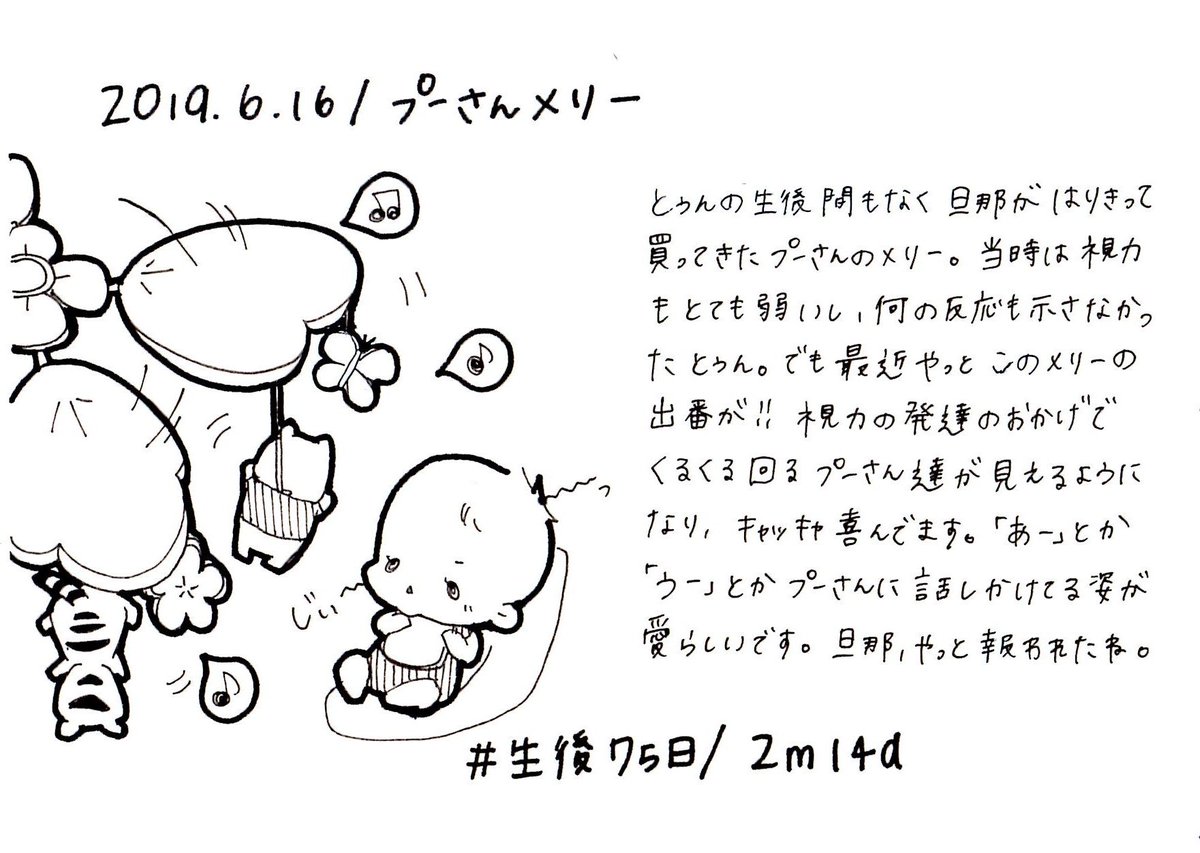 2019.6.16/プーさんメリー
とぅんの生後間もなく旦那がはりきって
買ってきたプーさんのメリー。当時は視力
もとても弱いし、何の反応も示さなかっ
たとぅん。でも最近やっとこのメリーの
出番が!!視力の発達のおかげで
くるくる回るプーさん達が見えるように
なり、キャッキャ喜んでます。「あー」とか
「うー」とかプーさんに話しかけてる姿が
愛らしいです。旦那、やっと報われたね。
じぃー
#生後75日/2m14d